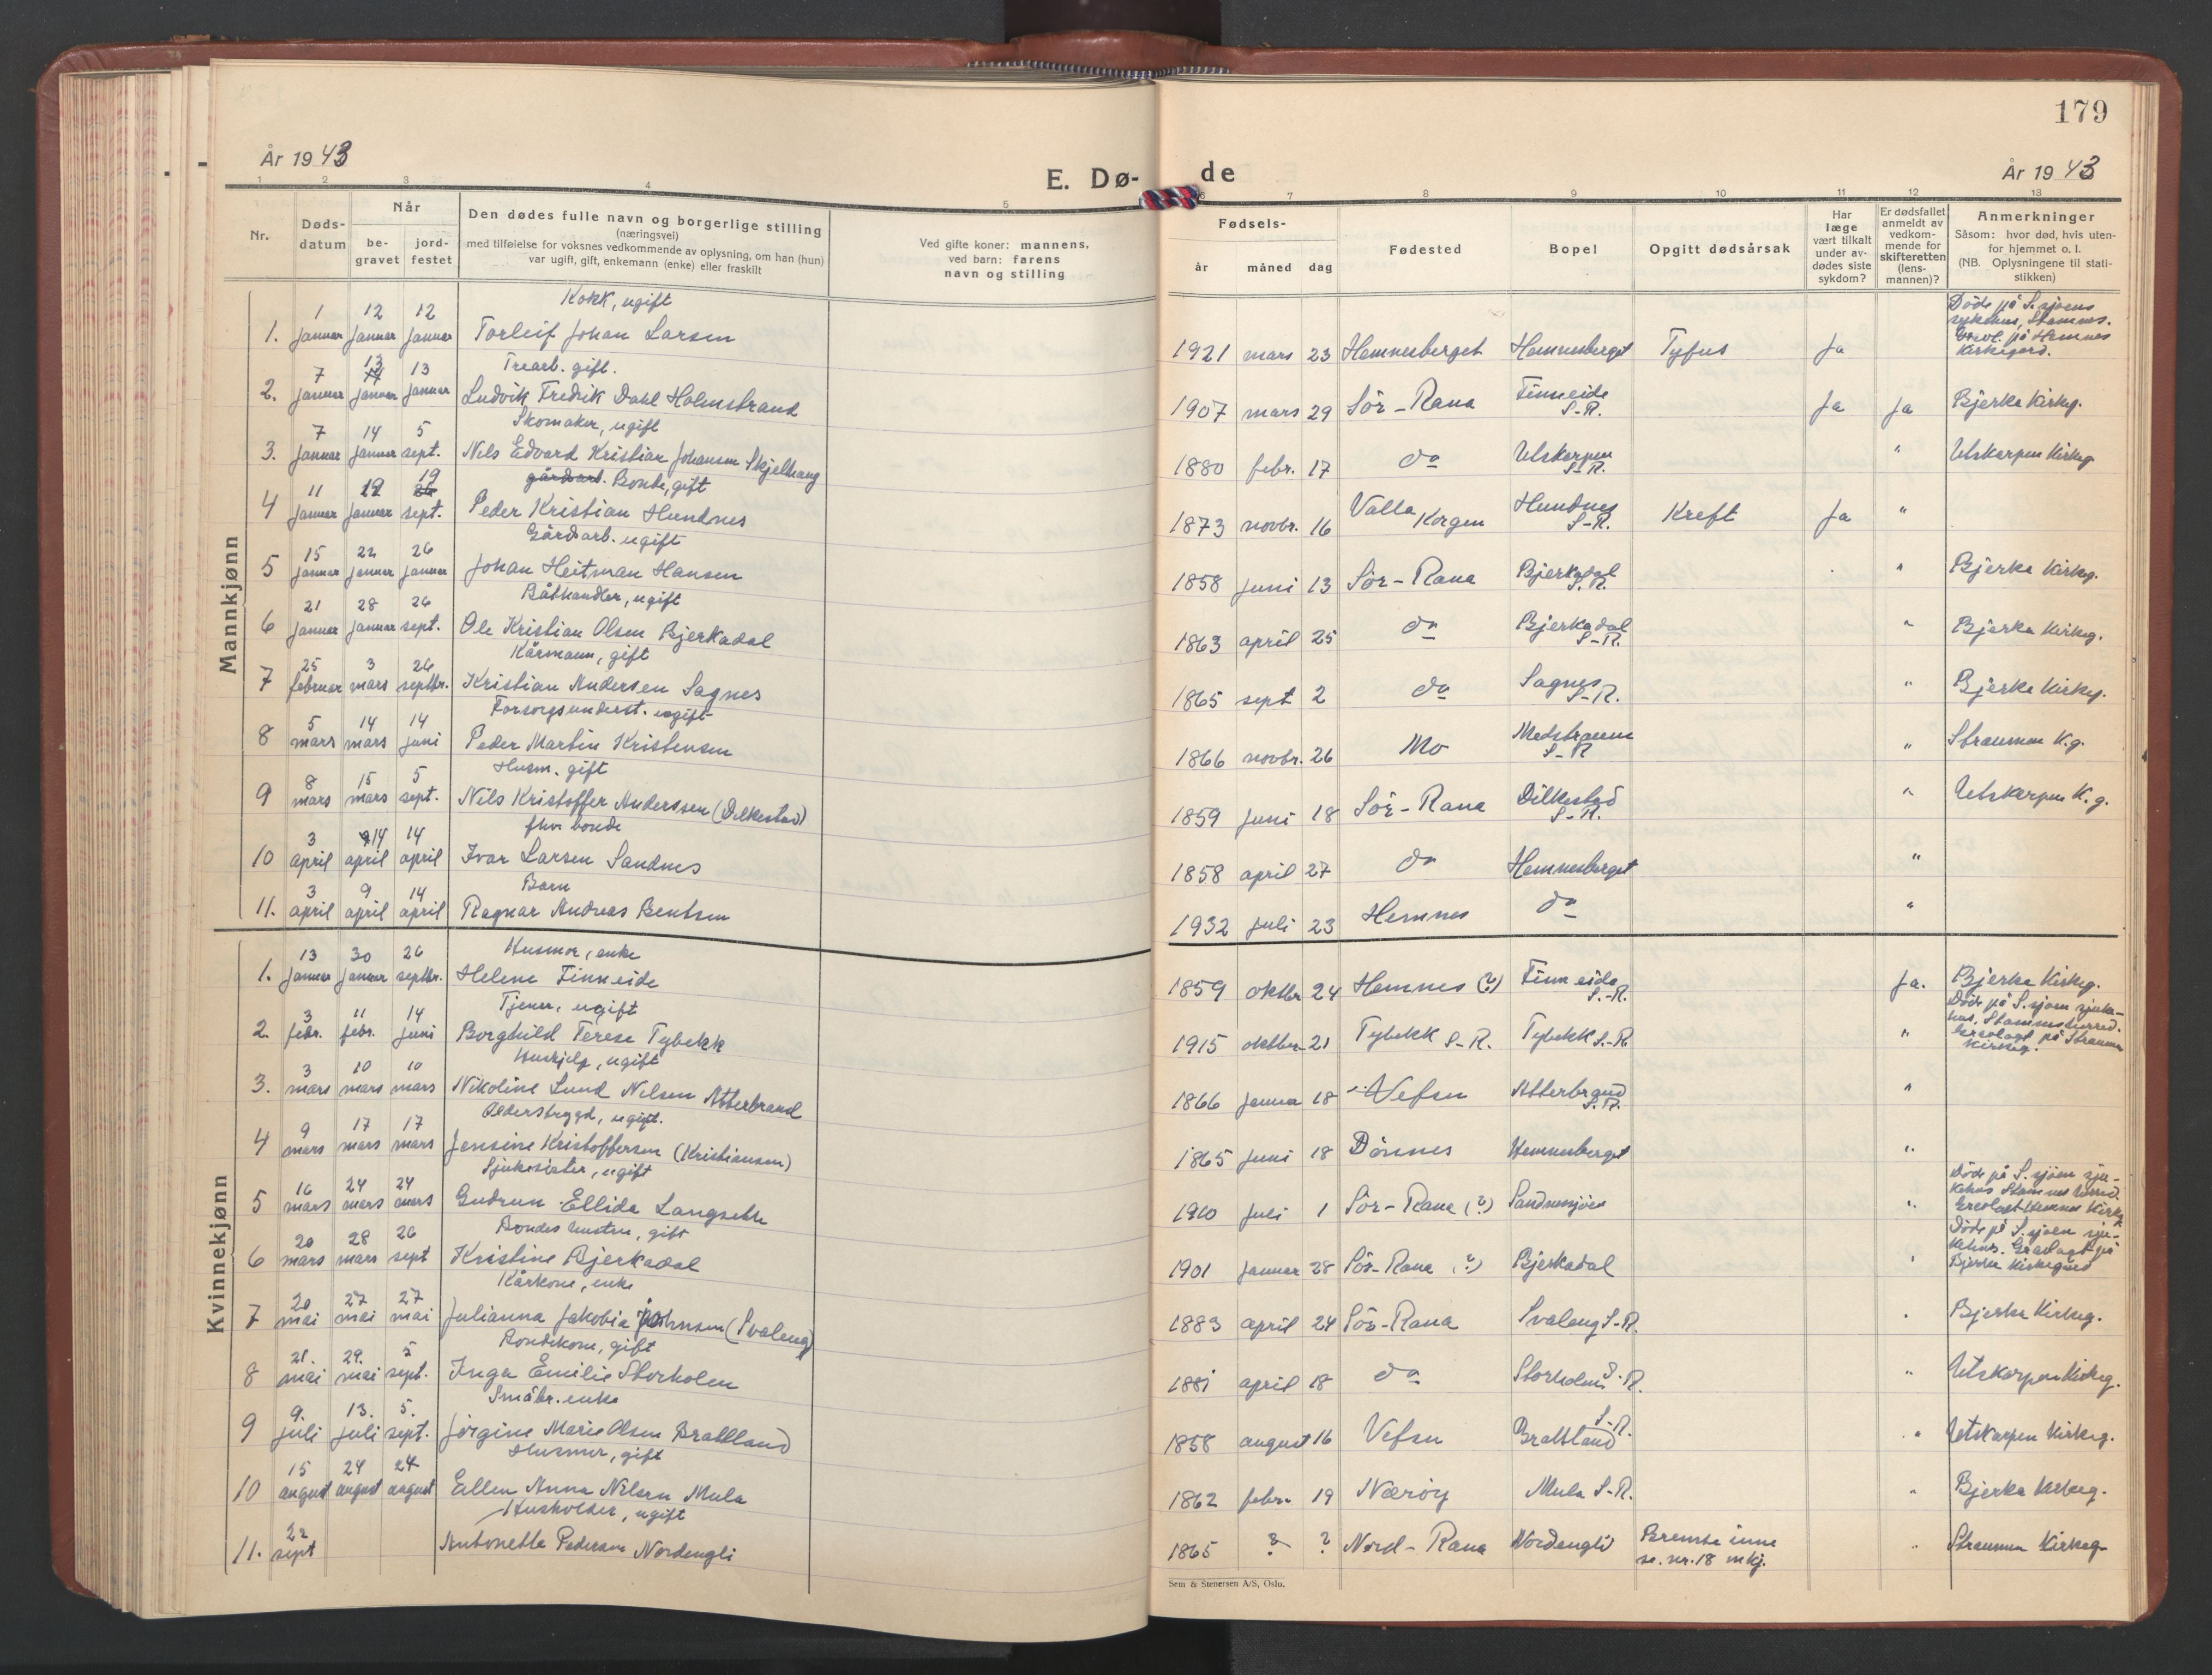 179
År 1943
E. Dø-
de
År 1943
1 2 3 4 5
6 7 8 9 10 11 12 13
Nr.
Døds-
datum
Når
be-
gravet
jord-
festet
Den dødes fulle navn og borgerlige stilling
(næringsvei)
med tilføielse for voksnes vedkommende av oplysning, om han (hun)
var ugift, gift, enkemann (enke) eller fraskilt
Ved gifte koner: mannens,
ved barn: farens
navn og stilling
Fødsels-
år måned dag
Fødested
Bopel
Opgitt dødsårsak
Har
læge
vært tilkalt
under av-
dødes siste
sykdom?
Er dødsfallet
anmeldt av
vedkom-
mende for
skifteretten
(lens-
mannen)?
Anmerkninger
Såsom: hvor død, hvis uten-
for hjemmet o. l.
(NB. Oplysningene til stati-
stikken)
Mannkjønn
Kokk, ugift
1. 1 januar 12 januar 12 januar Torleif Johan Larsen 1921 mars 23 Hemnesberget Hemnesberget Tyfus Ja
Døde på S.sjøens
sykehus, Stamnes.
Gravl. på Hemnes
Kirkegård.
Trearb. gift.
2. 7 januar 13 januar 13 januar Ludvik Fredrik Dahl Holmstrand 1907 mars 29 Sør-Rana Finneide S-R. Ja Ja Bjerka Kirkeg.
Skomaker, ugift
3. 7 januar 14 januar 5 sept. Nils Edvard Kristian Johansen Skjelhaug 1880 febr. 17 do Utskarpen S-R. " Utskarpen Kirkeg
gårdarb. Bonde, gift
4 11 januar 19 januar 19 sept. Peder Kristian Hundnes 1873 novbr. 16 Valla Korgen Hundnes S-R. Kreft Ja "
Gårdsarb. ugift
5 15 januar 22 januar 26 januar Johan Heitman Hansen 1858 juni 13 Sør-Rana Bjerkadal S.R. " Bjerka Kirkeg.
Båthandler, ugift
6 21 januar 28 januar 26 sept. Ole Kristian Olsen Bjerkadal 1863 april 25 do Bjerkadal S-R. " Bjerka Kirkeg.
Kårmann, gift
7 25 februar 3 mars 26 septbr. Kristian Andersen Sagnes 1865 sept 2 do Sagnes S-R. " Bjerka Kirkeg.
Forsorgsunderst. ugift
8 5 mars 14 mars 14 juni Peder Martin Kristensen 1866 novbr. 26 Mo Medstraum S-R " Straumen K.g.
Husm. gift
9 8 mars 15 mars 5 sept. Nils Kristoffer Anderssen (Dilkestad) 1859 juni 18 Sør-Rana Dilkestad S-R. " Utskarpen K.g.
fhv. bonde
10 3 april 14 april 14 april Ivar Larsen Sandnes 1858 april 27 do Hemnesberget "
Barn
11. 3 april 9 april 14 april Ragnar Andreas Bentsen 1932 juli 23 Hemnes do "
Kvinnekjønn
Husmor, enke
1. 13 januar 30 januar 26 septbr. Helene Finneide 1859 oktbr 24 Hemnes (?) Finneide S.-R. Ja. Bjerka Kirkeg.
Tjener, ugift
2. 3 febr. 11 febr. 14 juni Borghild Terese Tybekk 1915 oktbr 21 Tybekk S-R. Tybekk S-R "
Døde på S.sjøen sjuke-
hus, Stamnes herred.
Gravlagt på Straumen
Kirkeg.
Hushjelp, ugift
3. 3 mars 10 mars 10 mars Nikoline Lund Nilsen Atterbrand 1866 januar 18 Vefsn Atterbrand S.R. "
Alderstrygd, ugift.
4 9 mars 17 mars 17 mars Jensine Kristoffersen (Kristiansen) 1865 juni 18 Dønnes Hemnesberget "
Sjukesister, ugift
5 16 mars 24 mars 24 mars Gudrun Ellida Langseth 1910 juli 1 Sør-Rana (?) Sandnessjøen "
Døde på S.sjøen sju-
kehus Stamnes herred.
Gravlagt Hemnes Kirkg
Bondes hustru, gift
6 20 mars 28 mars 26 sept Kristine Bjerkadal 1901 januar 28 Sør-Rana (?) Bjerkadal "
Døde på S.sjøen sju-
kehus. Gravlagt på
Bjerka Kirkegård
Kårkone, enke
7 20 mai 27 mai 27 mai Julianna Jakobia Johnsen (Svaleng) 1883 april 24 Sør-Rana Svaleng S-R. " Bjerka Kirkeg.
Bondekone, gift
8 21. mai 29. mai 5 sept. Inga Emilie Storholm 1881 april 18 do Storholm S-R. " Utskarpen Kirkeg.
Småbr. enke
9 9. juli 13. juli 5. sept. Jørgine Marie Olsen Brattland 1858 august 16 Vefsn Brattland S-R. " Utskarpen Kirkeg.
Husmor, gift
10 15 august 24 august 24 august Ellen Anna Nilsen Mula 1862 febr. 19 Nærøy Mula S-R. " Bjerka Kirkeg.
Husholder, ugift
11. 22 sept Antonette Pedersen Nordengli 1865 ? ? Nord-Rana Nordengli Bremte inne
se. nr. 18 mkj. " Straumen Kirkeg
Sem & Stenersen A/S, Oslo.